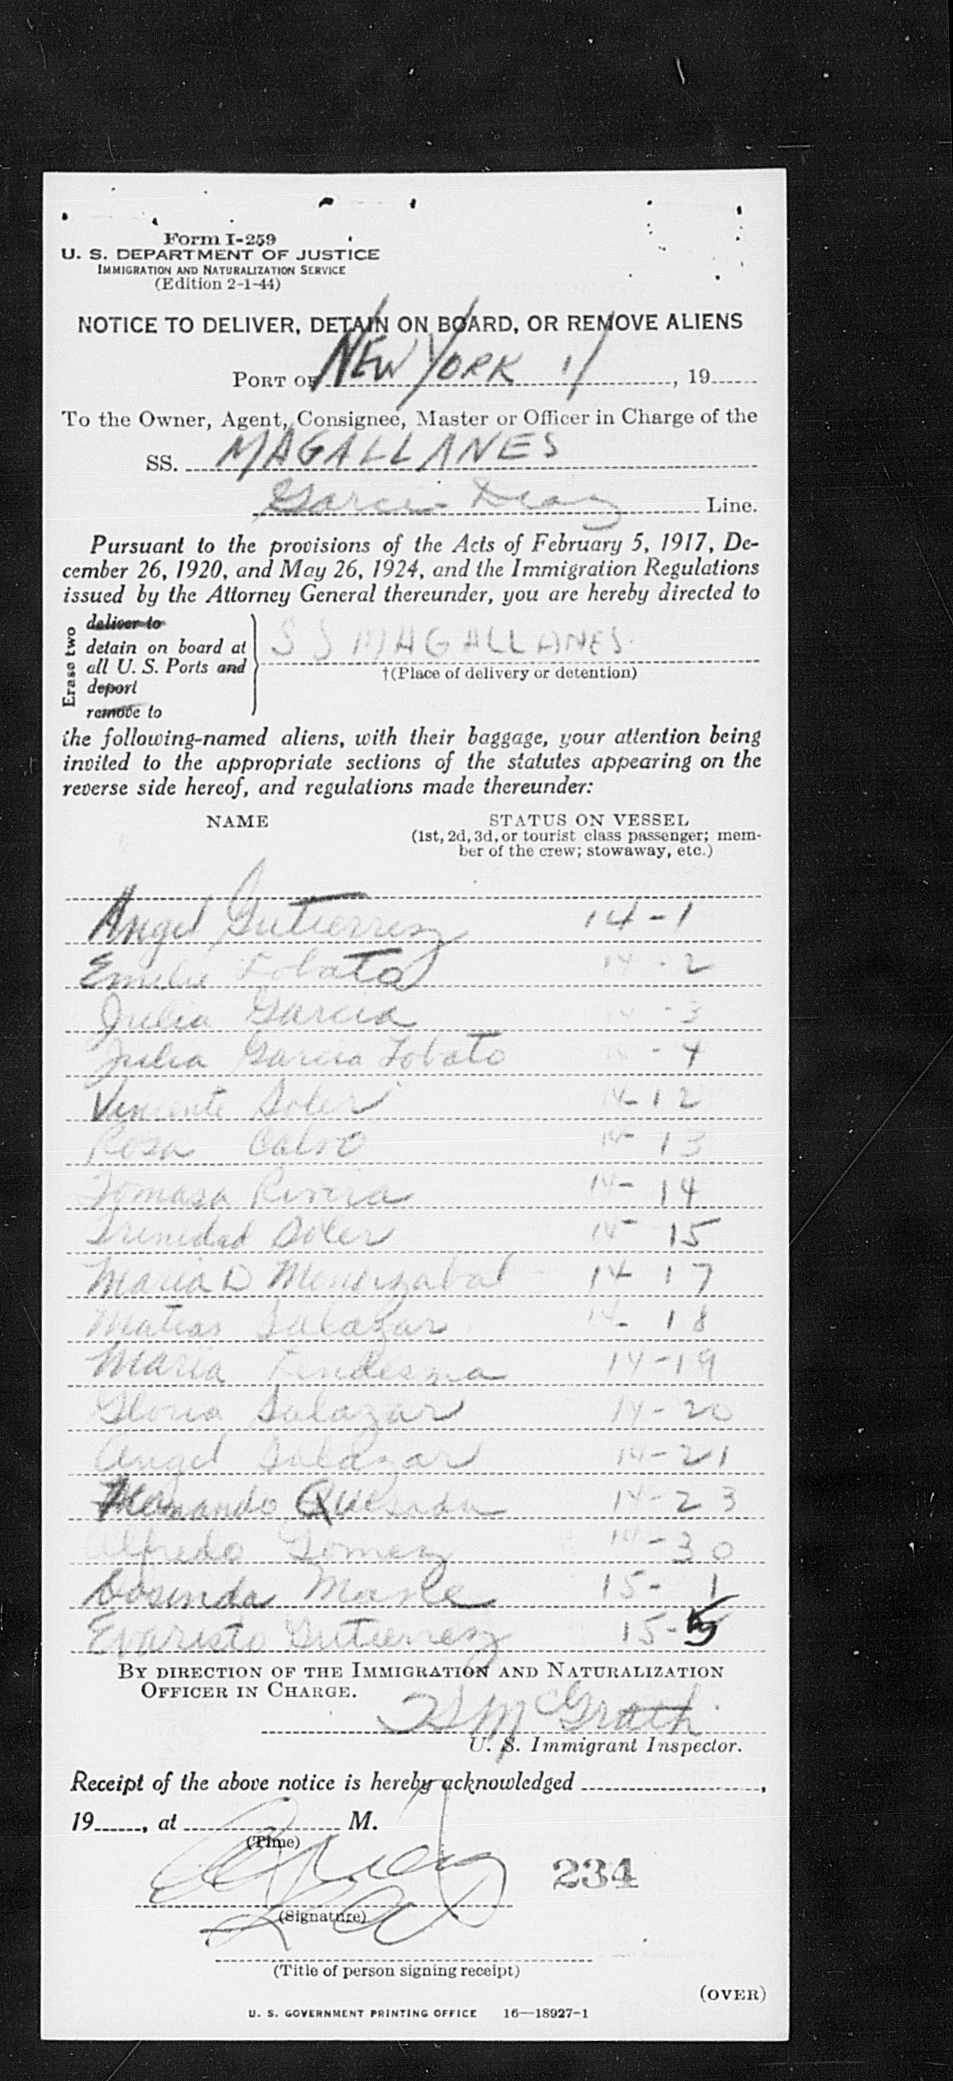 Form I-259
U. S. DEPARTMENT OF JUSTICE
IMMIGRATION AND NATURALIZATION SERVICE
(Edition 2-1-44)
NOTICE TO DELIVER, DETAIN ON BOARD, OR REMOVE ALIENS
PORT OF NEW YORK 11, 19
To the Owner, Agent, Consignee, Master or Officer in Charge of the
SS. MAGALLANES
Garcia Diaz Line.
Pursuant to the provisions of the Acts of February 5, 1917, De-
cember 26, 1920, and May 26, 1924, and the Immigration Regulations
issued by the Attorney General thereunder, you are hereby directed to
Erase two
deliver to
detain on board at
all U. S. Ports and
deport
remove to
S S MAGALLANES.
†(Place of delivery or detention)
the following-named aliens, with their baggage, your attention being
invited to the appropriate sections of the statutes appearing on the
reverse side hereof, and regulations made thereunder:
NAME STATUS ON VESSEL
(1st, 2d, 3d, or tourist class passenger; mem-
ber of the crew; stowaway, etc.)
Angel Gutierrez 14-1
Emilie Lobato 14-2
Julia Garcia 14-3
Julia Garcia Lobato 14-4
Vincente Soler 14-12
Rosa Calvo 14-13
Tomasa Rivera 14-14
Trinidad Soler 14-15
Maria D Mendizabal 14-17
Matias Salazar 14-18
Maria 14-19
Gloria Salazar 14-20
Angel Salazar 14-21
Quesada 14-23
Alfredo Gomez 14-30
Dosinda 15-1
Evaristo Gutierrez 15-5
BY DIRECTION OF THE IMMIGRATION AND NATURALIZATION
OFFICER IN CHARGE.
McGrath
U. S. Immigrant Inspector.
Receipt of the above notice is hereby acknowledged ,
19 , at M.
(Time)
234
(Signature)
(Title of person signing receipt)
(OVER)
U. S. GOVERNMENT PRINTING OFFICE 16—18927-1